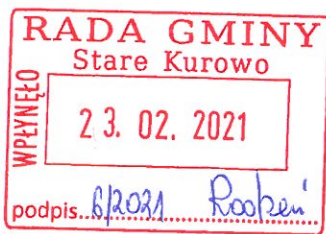 RADA GMINY
Stare Kurowo
WPŁYNĘŁO
23. 02. 2021
podpis 6/2021